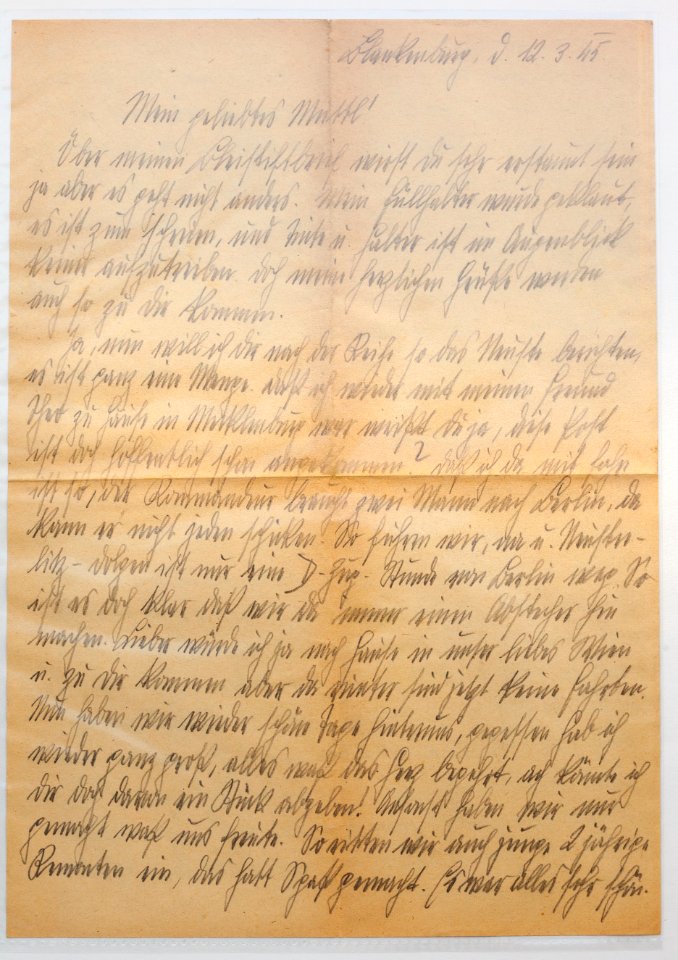 Blankenburg, d. 12. 3. 45.
Mein geliebtes Muttl!
Über meinen Bleistiftbrief wirst du sehr erstaunt sein
ja aber es geht nicht anders. Mein Füllhalter wurde geklaut,
es ist zum Schreien, und Tinte u. Halter ist im Augenblick
keine aufzutreiben. doch meine herzlichen Grüße werden
auch so zu dir kommen.
Ja, nun will ich dir nach der Reihe so das Neuste berichten,
es ist ganz eine Menge. daß ich wieder mit meinem Freund
Theo zu Hause in Mecklenburg war weißt du ja, diese Post
ist doch hoffentlich schon angekommen? daß ich da mit
ist so, der Kommandeur braucht zwei Mann nach Berlin, da
kann er nicht jeden schicken. So fuhren wir, u. Neustre-
litz - ist nur eine D-Zug-Stunde von Berlin weg. So
ist es doch klar daß wir da immer einen Abstecher hin
machen. Lieber würde ich ja nach Hause in unser liebes Wien
u. zu dir kommen aber da sind jetzt keine Fuhrben.
Nun haben wir wieder schöne Tage hinteruns, gegessen hab ich
wieder ganz groß, alles waß das Herz begehrt, ach könnte ich
dir doch davon ein Stück abgeben! Ansonst haben wir nur
gemacht waß uns freute. So ritten wir auch junge 2 jährige
Remonten ein, das hatt Spaß gemacht. Es war alles sehr schön.